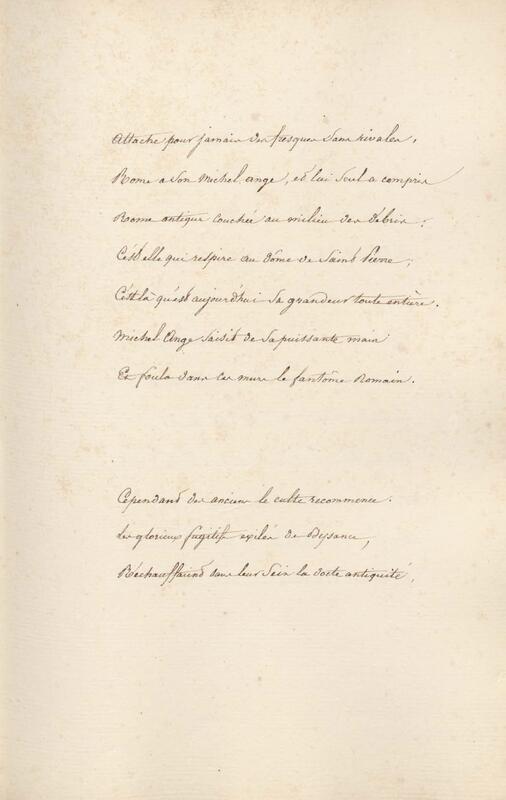 Attache pour jamais des fresques sans rivales,
Rome a son Michel ange, et lui seul a compris
Rome antique couchée au milieu des débris ;
C'est elle qui respire au dôme de Saint Pierre ;
C'est là qu'est aujourd'hui sa grandeur toute entière.
Michel Ange saisit de sa puissante main
Et foula dans ces murs le fantôme Romain.
Cependant des anciens le culte recommence.
Les glorieux fugitifs exilés de Bysance,
Réchauffaient dans leur sein la docte antiquité,